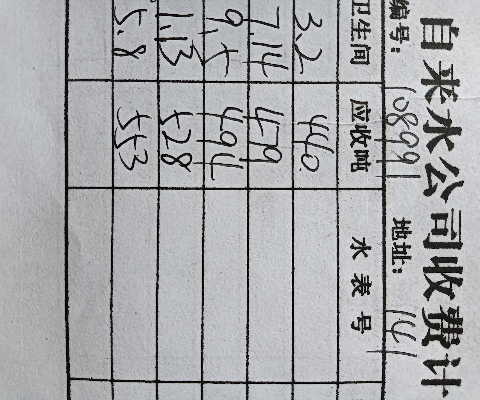 自来水公司收费计
编号: 10899 地址: 141
卫生间 应收吨 水表号
3.2 440
7.14 479
9.5 494
1.13 528
5.8 553